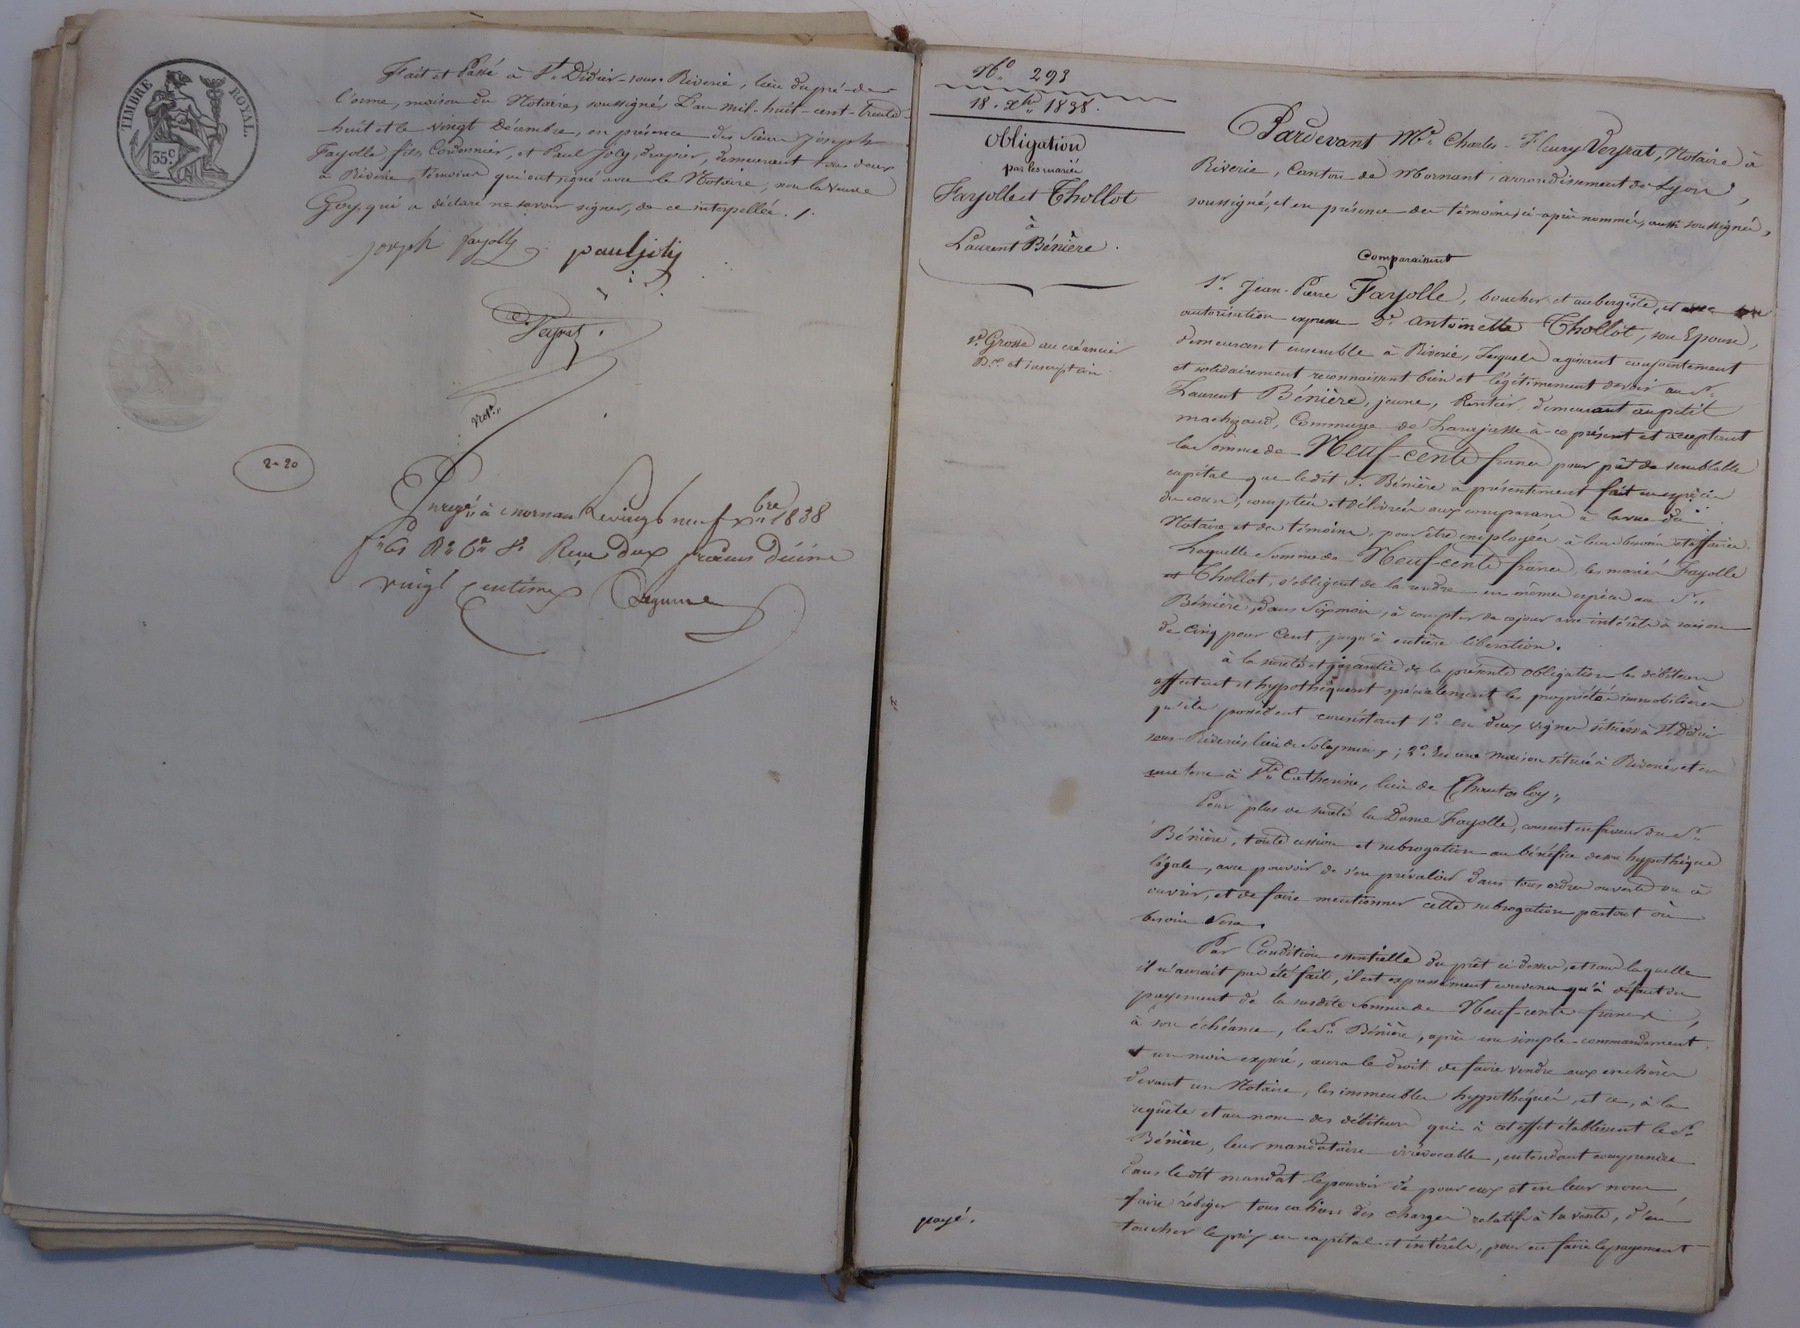 TIMBRE ROYAL.
35c
Fait et Passé à St. Didier-sous-Riverie, lieu du pré-de-
l'orme, maison du Notaire, soussigné, L'an mil-huit-cent-trente-
huit et le vingt Décembre, en présence des sieurs Joseph
Fayolle fils, Cordonnier, et Paul Joly, drapier, demeurant tous deux
à Riverie, témoins qui ont signé avec le Notaire, non la veuve
Goy, qui a déclaré ne savoir signer, de ce interpellée. /.
joseph fayolle paul joly
Veyrat
Not.re
2-20
Enregé. à mornan Le vingt neuf xbre 1838
fo. 61 Ro. Ce. 8. Reçu deux francs Décime
vingt centimes
No. 293
18. Xbre 1838.
Obligation
par les mariés
Fayolle et Thollot
à
Laurent Bénière.
1re Grosse au créancier
et inscription
payé.
Pardevant Me. Charles-Fleury Veyrat, Notaire à
Riverie, Canton de Mornant, arrondissement de Lyon,
soussigné, et en présence des témoins ci-après nommés, aussi soussignés,
Comparaissent
Sr. Jean-Pierre Fayolle, boucher et aubergiste, et
autorisation expresse De. Antoinette Thollot, son Epouse,
demeurant ensemble à Riverie, Lesquels agissant conjointement
et solidairement reconnaissent bien et légitimement devoir au Sr.
Laurent Bénière, jeune, Rentier, demeurant au petit
machizaud, Commune de Larajasse à ce présent et acceptant
la Somme de Neuf-cents francs pour prêt de semblable
capital que ledit Sr. Bénière a présentement fait en espèces
du cours, comptées et délivrées aux comparans à la vue du
Notaire et des témoins, pour être employées à leurs besoins et affaires.
Laquelle Somme de Neuf-cents francs, les mariés Fayolle
et Thollot, s'obligent de la rendre en mêmes espèces au Sr.
Bénière, dans Six mois, à compter de ce jour avec intérêts à raison
de Cinq pour Cent, jusqu'à entière libération.
à la sureté et garantie de la présente Obligation les débiteurs
affectent et hypothèquent spécialement les propriétés immobilières
qu'ils possèdent consistant 1o. en deux vignes situées à St. Didier
sous-Riverie lieu de Soleymieux; 2o. En une maison située à Riverie, et en
une terre à Ste. Catherine, lieu de Chantaloy.,
Pour plus de sureté la Dame Fayolle, consent en faveur du Sr.
Bénière, toute cession et subrogation au bénéfice de son hypothèque
légale, avec pouvoir de s'en prévaloir dans tous ordres ouverts ou à
ouvrir, et de faire mentionner cette subrogation partout où
besoin sera.
Par Condition essentielle du prêt ci-dessus, et sans laquelle
il n'aurait pas été fait, il est expressément convenu qu'à défaut du
payement de la susdite Somme de Neuf-cents francs,
à son échéance, le Sr. Bénière, après un simple commandement
et un mois expiré, aura le droit de faire vendre aux enchères
devant un Notaire, les immeubles hypothéqués, et ce, à la
requête et au nom des débiteurs qui à cet effet établissent le Sr.
Bénière, leur mandataire irrévocable, entendant comprendre
dans le dit mandat le pouvoir de pour eux et en leur nom,
faire rédiger tous cahiers des charges relatifs à la vente, d'en
toucher le prix en capital et intérêts, pour en faire le payement